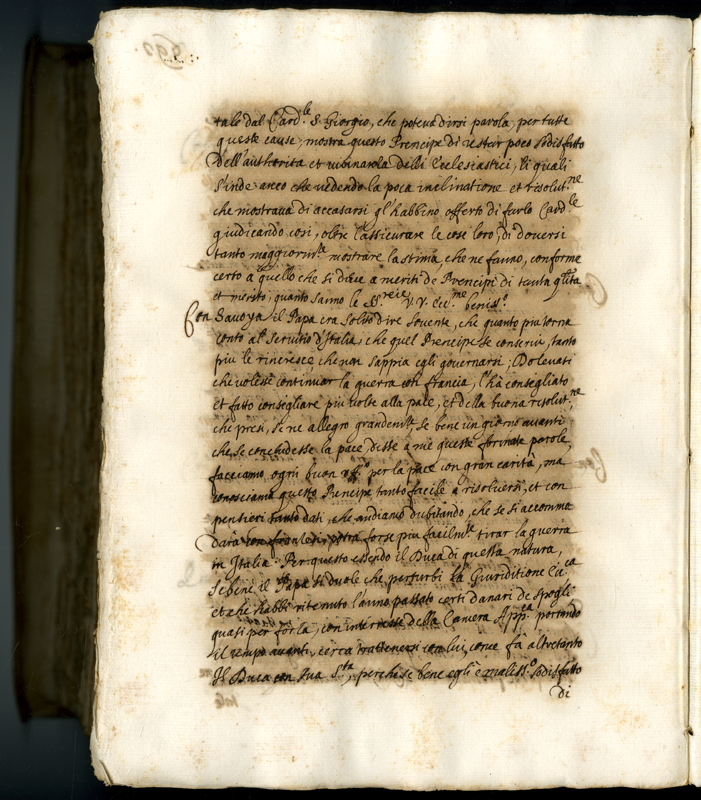 tale dal Card.le S. Giorgio, che poteva dirsi parola, per tutte
queste cause, mostra questo Prencipe di restar poco sodisfatto
dell'authorità et delli Ecclesiastici, li quali
anco che vedendo la poca inclinatione et risolut.ne
che mostrava di accasarsi gl'habbino offerto di farlo Card.le
giudicando così, oltre l'assicurare le cose loro, di doversi
tanto maggiorm.te mostrare la stima che ne fanno, conforme
certo a quello che si deve a meriti de Prencipi di tanta q.lita
et merito, quanto sanno le SS.rie V.V. Ecc.me beniss.o
Con Savoya il Papa era solito dire sovente, che quanto più torna
conto al servitio d'Italia, che quel Prencipe se conservi, tanto
più le rincresce, che non sappia egli governarsi; Dolevasi
che volesse continuar la guerra con Francia, l'hà consigliato
et fatto consigliare più volte alla pace, et della buona risolut.ne
che prese, se ne allegro grandem.te, se bene un giorno avanti
che se concludesse la pace, disse a me queste formate parole,
facciamo ogni buon off.o per la pace con gran carità, ma
conosciamo questo Prencipe tanto facile a risolversi, et con
pensieri tanto dati, che andiamo dubitando, che se si accomma
darà con francesi, potrà forse più facilm.te tirar la guerra
in Italia. Per questo essendo il Duca di questa natura,
se bene il Papa si duole che perturbi la Giuriditione
et che habbi ritenuto l'anno passato certi danari de spogli
quasi per forza, con interesse della Camera App.ca, portando
il tempo avanti, cerca trattenersi con lui, come fà altretanto
Il Duca con sua S.tà, perche se bene egli è maliss.o sodisfatto
di